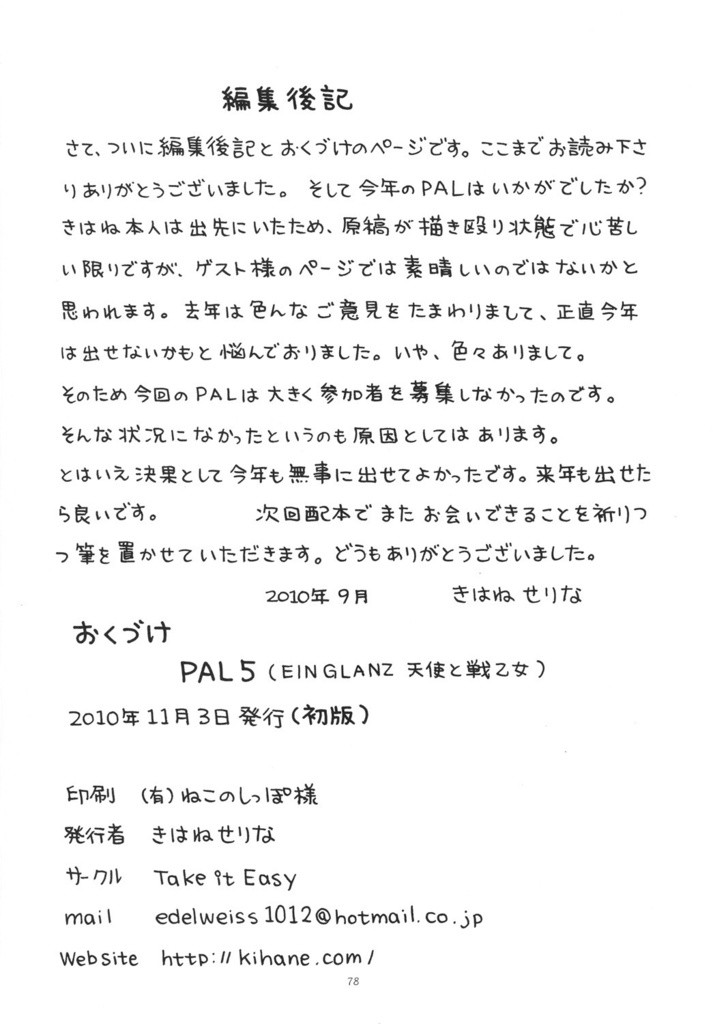 編集後記
さて、ついに編集後記とおくづけのページです。ここまでお読み下さ
りありがとうございました。 そして今年のPALはいかがでしたか?
きはね本人は出先にいたため、原稿が描き殴り状態で心苦し
い限りですが、ゲスト様のページでは素晴しいのではないかと
思われます。去年は色んなご意見をたまわりまして、正直今年
は出せないかもと悩んでおりました。いや、色々ありまして。
そのため今回のPALは大きく参加者を募集しなかったのです。
そんな状況になかったというのも原因としてはあります。
とはいえ決果として今年も無事に出せてよかったです。来年も出せた
ら良いです。 次回配本でまたお会いできることを祈りつ
つ筆を置かせていただきます。どうもありがとうございました。
2010年9月 きはねせりな
おくづけ
PAL5(EINGLANZ 天使と戦乙女)
2010年11月3日発行(初版)
印刷 (有)ねこのしっぽ様
発行者 きはねせりな
サークル Take it Easy
mail edelweiss1012@hotmail.co.jp
Website http://kihane.com/
78